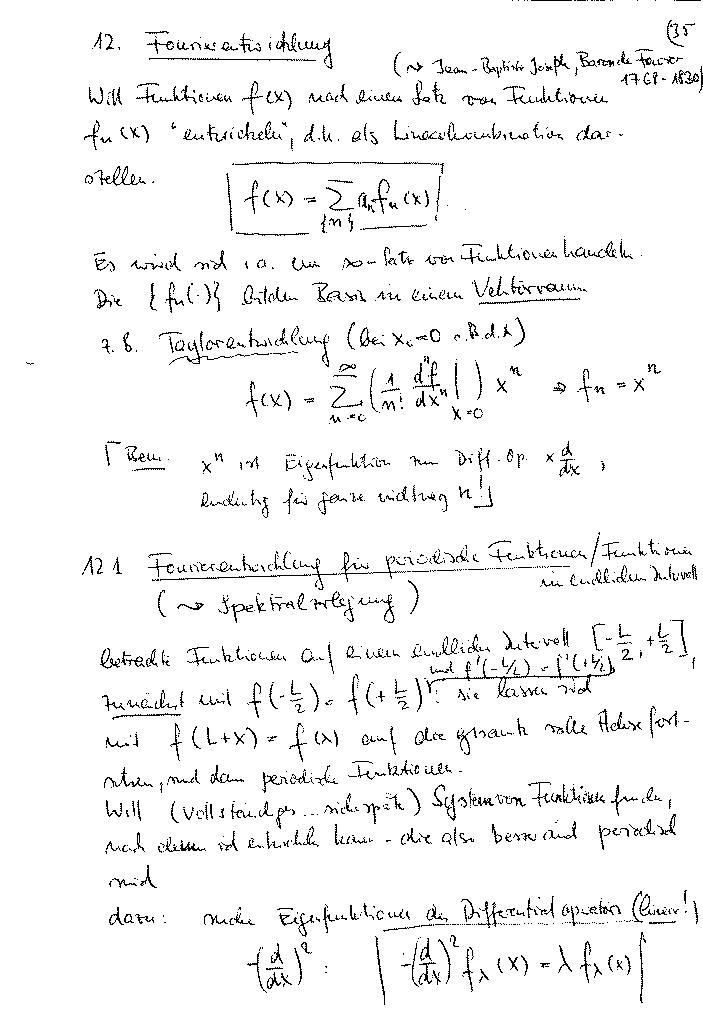 (35
12. Fourierentwicklung
(↝ Jean-Baptiste Joseph, Baron de Fourier
1768-1830)
Will Funktionen f(x) nach einem Satz von Funktionen
fn(x) "entwickeln", d.h. als Linearkombination dar-
stellen.
f(x) = ∑{n} an fn(x)
Es wird sich i.a. um ∞-Satz von Funktionen handeln.
Die {fn(·)} bilden Basis in einem Vektorraum
z.B. Taylorentwicklung (bei x0=0 o.B.d.A)
f(x) = ∑_{n=0}^{∞} (1/n! d^n f/dx^n |_{x=0}) x^n ⇒ fn = x^n
⌈Bem. x^n ist Eigenfunktion zum Diff.-Op. x d/dx,
eindeutig für ganze nichtneg n!⌋
12.1 Fourierentwicklung für periodische Funktionen/Funktionen
im endlichen Intervall
(↝ Spektralzerlegung)
betrachte Funktionen auf einem endlichen Intervall [-L/2, +L/2],
und f'(-L/2) = f'(+L/2)
zunächst mit f(-L/2) = f(+L/2): sie lassen sich
mit f(L+x) = f(x) auf die gesamte reelle Achse fort-
setzen, sind dann periodische Funktionen.
Will (vollständiges ... siehe später) System von Funktionen finden,
nach denen ich entwickeln kann - die also besser auch periodisch
sind
dazu: suche Eigenfunktionen des Differentialoperators (linear!)
-(d/dx)^2 : -(d/dx)^2 fλ(x) = λ fλ(x)